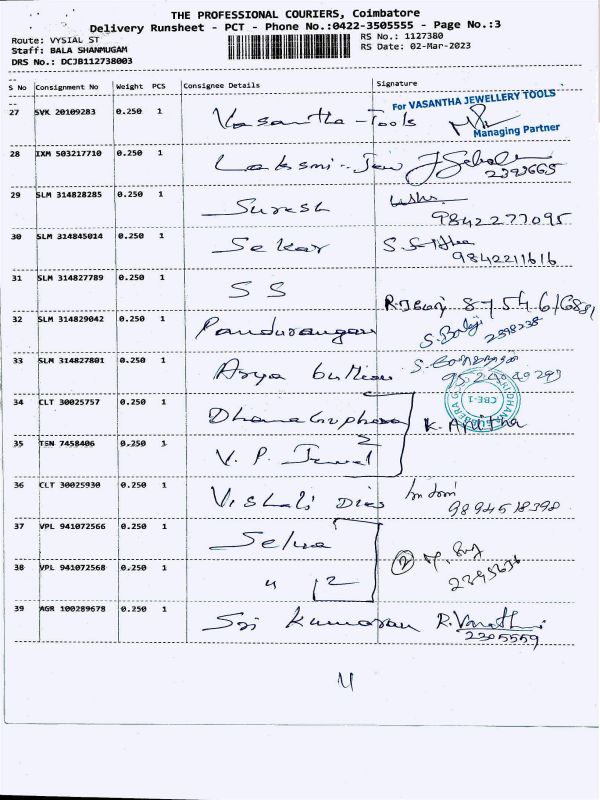 THE PROFESSIONAL COURIERS, Coimbatore
Delivery Runsheet - PCT - Phone No.:0422-3505555 - Page No.:3
Route: VYSIAL ST RS No.: 1127380
Staff: BALA SHANMUGAM RS Date: 02-Mar-2023
DRS No.: DCJB112738003
S No Consignment No Weight PCS Consignee Details Signature
For VASANTHA JEWELLERY TOOLS
27 SVK 20109283 0.250 1 Vasantha-Tools
Managing Partner
28 IXM 503217710 0.250 1 Laksmi-Jew
2393665
29 SLM 314828285 0.250 1 Suresh
9842277095
30 SLM 314845014 0.250 1 Sekar
9842211616
31 SLM 314827789 0.250 1 S S
32 SLM 314829042 0.250 1 Pandurangan S. Balaji
33 SLM 314827801 0.250 1 Arya bullion
34 CLT 30025757 0.250 1 CBE-1 K. Anitha
35 TSN 7458406 0.250 1 V. P. Jewel 2
36 CLT 30025930 0.250 1 Vishali Dies
9894518398
37 VPL 941072566 0.250 1 Selva
38 VPL 941072568 0.250 1 " 2 2
39 AGR 100289678 0.250 1 Sri Kumaran R. Vanathi
2305559